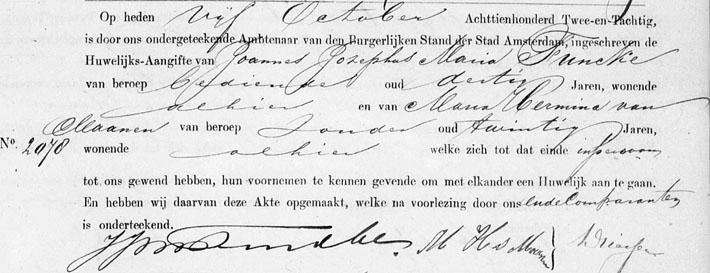 Op heden vijf October Achttienhonderd Twee-en-Tachtig,
is door ons ondergeteekende Ambtenaar van den Burgerlijken Stand der Stad Amsterdam, ingeschreven de
Huwelijks-Aangifte van Joannes Josephus Maria Funcke
van beroep bediende oud dertig Jaren, wonende
alhier en van Maria Hermina van
Maanen van beroep zonder oud twintig Jaren,
No. 2078 wonende alhier welke zich tot dat einde in persoon
tot ons gewend hebben, hun voornemen te kennen gevende om met elkander een Huwelijk aan te gaan.
En hebben wij daarvan deze Akte opgemaakt, welke na voorlezing door ons en de Comparanten
is onderteekend.
Funcke M H v Maanen